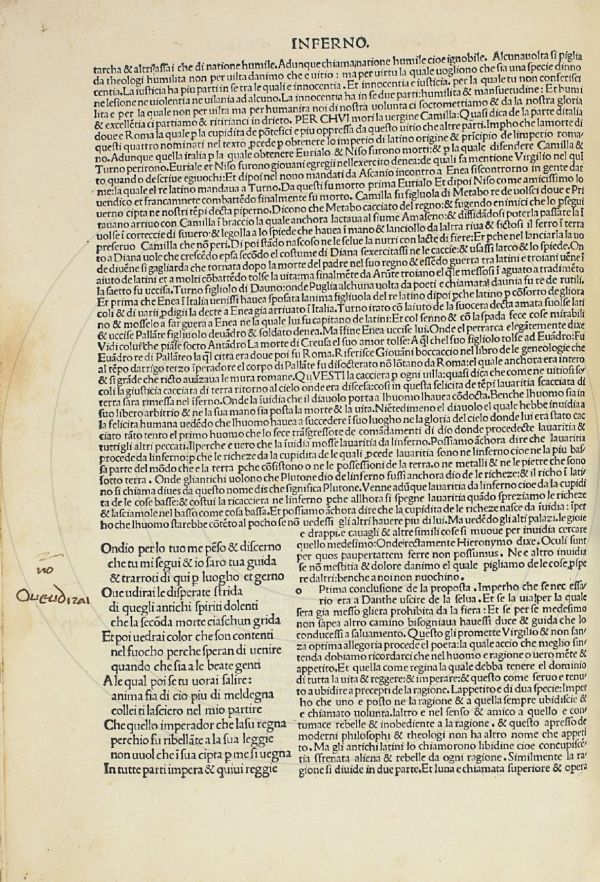 INFERNO.
tarcha & altri assai che di natione humile. Adunque chiama natione humile cioe ignobile. Alcuna uolta si piglia
da theologi humilita non per uilta danimo che e uitio : ma per uirtu la quale uogliono che sia una specie dinno
centia. La iusticia ha piu parti in se tra le quali e innocentia. Et innocentia e iusticia. per la quale tu non conferisci
ne lesione ne uiolentia ne uilania ad alcuno. La innocentia ha in se due parti: humilita & mansuetudine: Et humi
lita e per la quale non per uilta ma per humanita noi di nostra uolunta ci soctomettiamo & da la nostra gloria
& excellētia ci partiamo & ritiranci in drieto. PER CHVI mori la uergine Camilla: Quasi dica de la parte ditalia
doue e Roma la quale p la cupidita de pōtefici e piu oppressa da questo uitio che altre parti. Impho che la morte di
questi quattro nominati nel texto pcede p obtenere lo imperio di latino origine & pricipio de limperio roma/
no. Adunque quella italia p la quale obtenere Eurialo & Niso furono morti: & p la quale difendere Camilla &
Turno perirono. Euriale et Niso furono giouani egregii nellexercito denea: de quali fa mentione Virgilio nel qui
to quando descriue e giuochi: Et dipoi nel nono mandati da Ascanio incontro a Enea si scontrorno in gente dar
me: la quale el re latino mandaua a Turno. Da questi fu morto prima Eurialo Et dipoi Niso come amicissimo lo
uendico et francamente combattēdo finalmente fu morto. Camilla fu figluola di Metabo re de uolsci doue e Pri
uerno cipta ne nostri tēpi desta piperno. Dicono che Metabo cacciato del regno: & fugendo enimici che lo psegui
tauano arriuo con Camilla ī braccio la quale anchora lactaua al fiume Amaseno: & diffidādosi poterla passare la ī
uolse ī correccie di suuero & legolla a lo spiede che hauea ī mano & lanciollo da laltra riua & fictosi il ferro ī terra
preseruo Camilla che nō peri. Di poi stādo nascoso ne le selue la nutri con lacte di fiere: Et pche nel lanciarla la uo
to a Diana uole che crescēdo epsa secōdo el costume di Diana sexercitassi ne le caccie: & usassi larco & lo spiede. On
de diuēne si gagliarda che tornata dopo la morte del padre nel suo regno & essēdo guerra tra latini e troiani uēne ī
aiuto de latini et a molti cōbattēdo tolse la uita: ma finalmēte da Arūte troiano el qle messosi ī aguato a tradimēto
la saetto fu uccisa. Turno figliolo di Dauno: onde Puglia alchuna uolta da poeti e chiamata daunia fu re de rutili.
Et prima che Enea ī Italia uenissi hauea sposata lanima figliuola del re latino dipoi pche latino p cōforto de gliora
coli & di uarii pdigii la dette a Enea gia arriuato ī Italia. Turno irato cō laiuto de la suocera decta amata suolse lati
no & mosselo a far guerra a Enea ne la quale lui fu capitano de latini: Et col senno & cō la spada fece cose mirabili
& uccise Pallāte figliuolo deuādro & soldato denea. Ma īfine Enea uccise lui. Onde el petrarca elegātemente dixe
Vidi colui che piāse socto Antādro La morte di Creusa el suo amor tolse: A ql chel suo figliolo tolse ad Euādro: Fu
Euādro re di Pallāteo la ql citta era doue poi fu Roma. Riferisce Giouāni boccaccio nel libro de le geneologie che
al tēpo darrigo terzo īperadore el corpo di Pallāte fu discoterato nō lōtano da Roma: el quale anchora era intero
& si grāde che ricto auāzaua le mura romane. QVESTI la caccierà p ogni uilla: quasi dica che come ne uitiosi se/
coli la giusticia cacciata di terra ritorno al cielo onde era discesa: cosi in questa felicita de tēpi lauaritia scacciata di
terra sara rimessa nel īferno. Onde la īuidia che il diauolo porta a lhuomo lhauea cōdocta. Benche lhuomo sia in
suo libero arbitrio & ne la sua mano sia posta la morte & la uita. Nietedimeno el diauolo el quale hebbe inuidia a
la felicita humana uedēdo che lhuomo hauea a succedere ī suo luogho ne la gloria del cielo donde lui era stato cac
ciato tāto tento el primo huomo che lo fece trāsgressore de comādamenti di dio donde procedecte lauaritia &
tutti gli altri peccati. Il perche e uero che la īuidia mosse lauaritia da linferno. Possiamo āchora dire che lauaritia
procede da linferno: p che le richeze da la cupidita de le quali pcede lauaritia sono ne linferno cioe ne la piu bas/
sa parte del mōdo che e la terra pche cōsistono o ne le possessioni de la terra. o ne metalli & ne le pietre che sono
sotto terra. Onde gliantichi uolono che Plutone dio de linferno fussi anchora dio de le richeze: & il richo ī lati/
no si chiama diues da questo nome dis che significa Plutone. Venne adūque lauaritia da linferno cioe da la cupidi
ta de le cose basse: & costui la ricacciera ne linferno pche allhora si spegne lauaritia quādo spreziamo le richeze
& lasciamole nel basso come cosa bassa. Et possiamo āchora dire che la cupidita de le richeze nasce da īuidia: īpe/
ho che lhuomo starebbe cōtēto al pocho se nō uedessi gli altri hauere piu di lui. Ma uedēdo gli altri palazi. le gioie
e drappi. e cauagli & altre simili cose si muoue per inuidia cercare
quello medesimo: Onde rectamente Hieronymo dixe. Oculi sunt
per quos paupertattem ferre non possumus. Ne e altro inuidia
se nō mestitia & dolore danimo el quale pigliamo de le cose, pspe
re daltri: benche a noi non nuochino.
o Prima conclusione de la proposta. Imperho che se nec essa/
rio era a Danthe uscire de la selua. Et se la uia: per la quale
sera gia messo gliera prohibita da la fiera: Et se per se medesimo
non sapea altro camino bisogniaua hauessi duce & guida che lo
conducessi a saluamento. Questo gli promette Virgilio & non san/
za optima allegoria procede el poeta: la quale accio che meglio sin/
tenda dobiamo ricordarci che nel huomo e ragione o uero mēte &
appetito. Et quella come regina la quale debba tenere el dominio
di tutta la uita & reggere: & imperare: & questo come seruo e tenu/
to a ubidire a precepti de la ragione. Lappetito e di dua specie: Imper
ho che uno e posto ne la ragione & a quella sempre ubidiscie &
e chiamato uolunta. laltro e nel senso & amico a quello e con/
tumace rebelle & inobediente a la ragione. & questo apresso de
moderni philosophi & theologi non ha altro nome che appeti
to. Ma gli antichi latini lo chiamorono libidine cioe concupiscē
tia sfrenata aliena & rebelle da ogni ragione. Similmente la ra/
gione si diuide in due parte. Et luna e chiamata superiore & opera
Ondio per lo tuo me pēso & discerno
che tu mi segui & io saro tua guida
& trarroti di qui p luogho et gerno
Oue udirai le disperate strida
di quegli antichi spiriti dolenti
che la secōda morte ciaschun grida
Et poi uedrai color che son contenti
nel fuocho perche speran di uenire
quando che sia a le beate genti
A le qual poi se tu uorai salire:
anima fia di cio piu di me degna
con lei ti lasciero nel mio partire
Che quello imperador che lasu regna
perchio fu ribellāte a la sua leggie
non uuol che ī sua cipta p me si uegna
In tutte parti impera & quiui reggie
no
Oueudirai